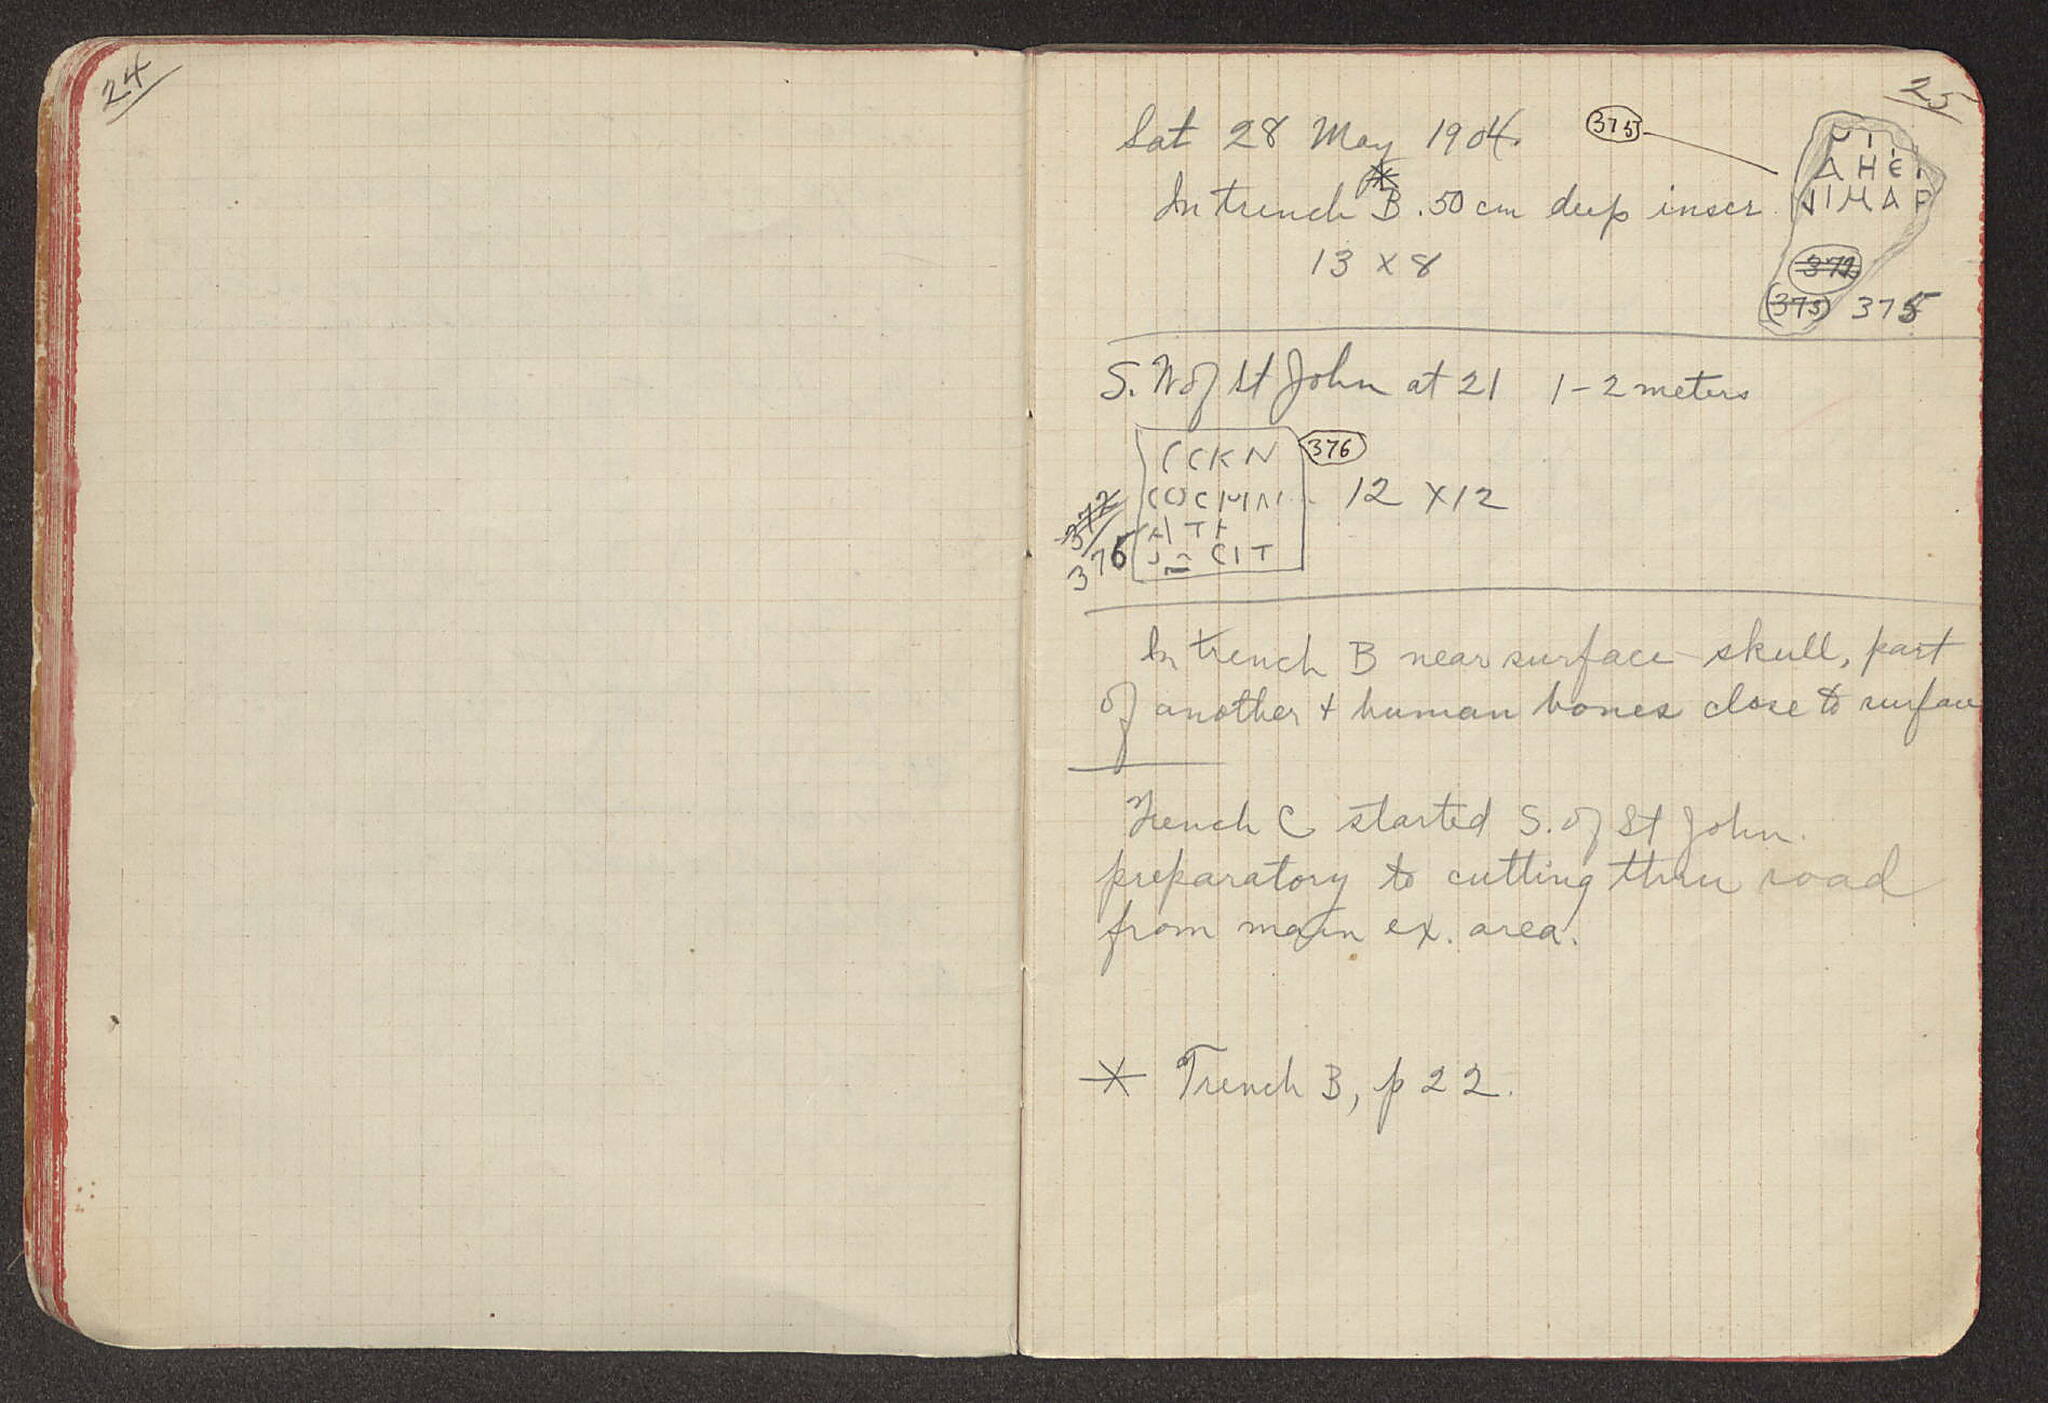 24
25
Sat 28 May 1904.
375
In trench B .50 cm deep inscr.
13 x 8
ΔΗΕΙ
ΙΜΑΡ
372
375 375
S. W of St John at 21 1-2 meters
CCKN
376
COCMN
12 x 12
372
376
ΑΙΤ
CIT
In trench B near surface skull, part
of another + human bones close to surface
Trench C started S. of St John.
preparatory to cutting thru road
from main ex. area.
* Trench B, p 22.